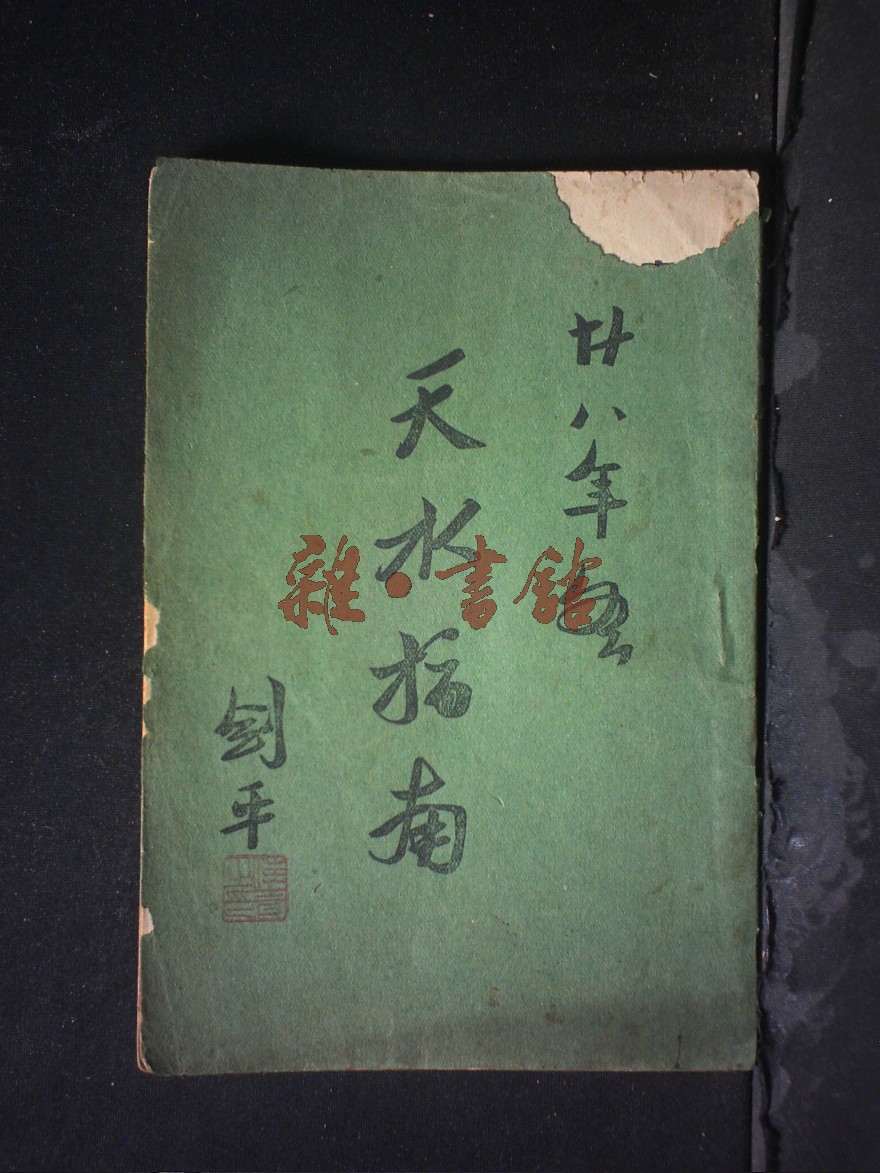 廿八年
天水指南
剑平
雜·書館